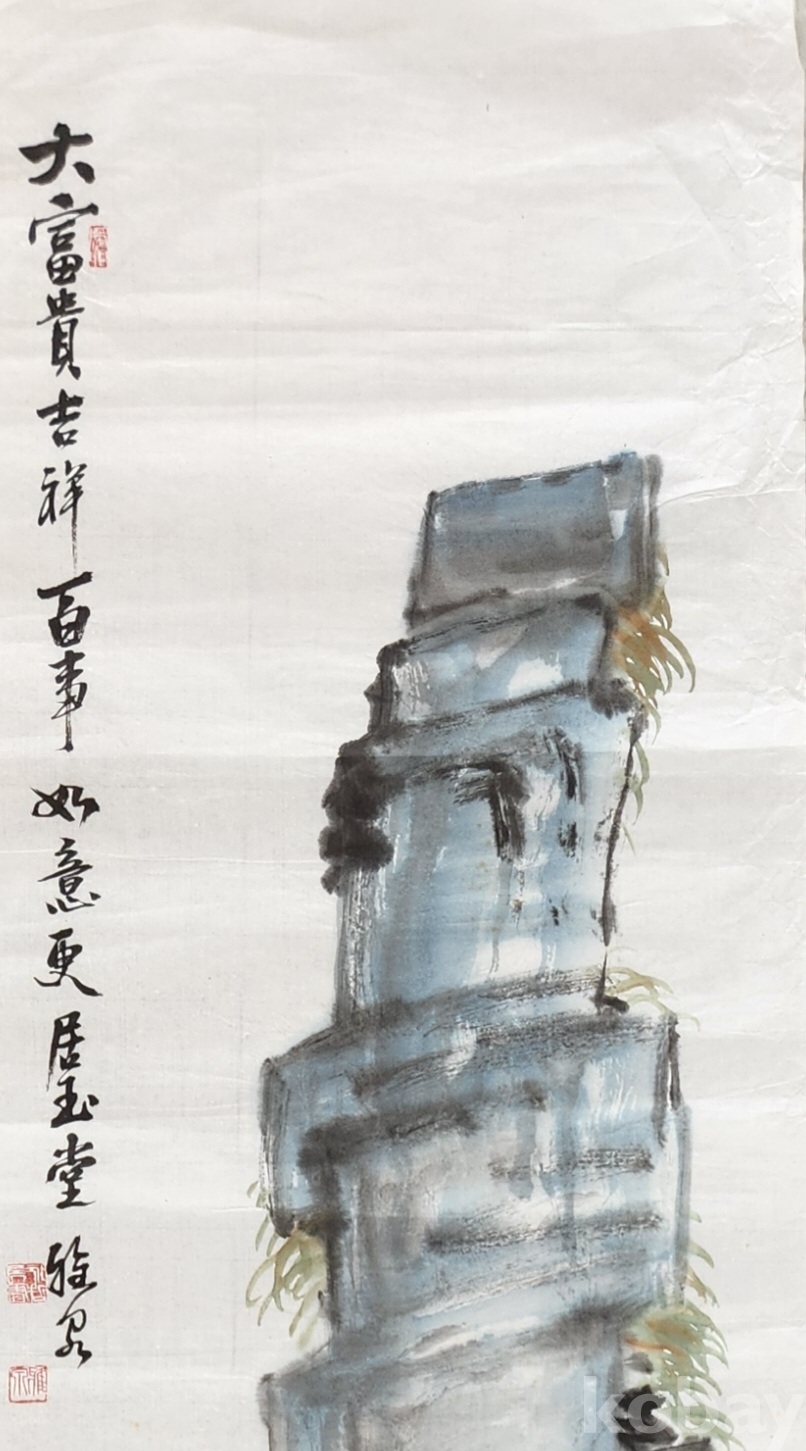 大富貴吉祥百事如意更居玉堂 雅泉
kcbay